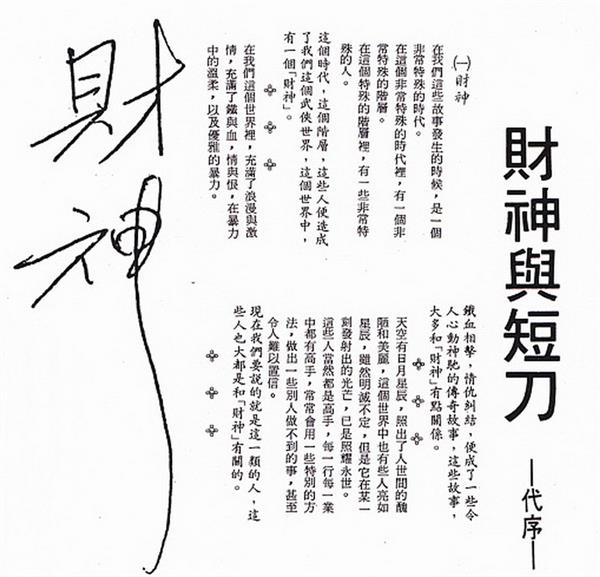 財神與短刀
—代序—
㈠財神
在我們這些故事發生的時候,是一個
非常特殊的時代。
在這個非常特殊的時代裡,有一個非
常特殊的階層。
在這個特殊的階層裡,有一些非常特
殊的人。
這個時代,這個階層,這些人便造成
了我們這個武俠世界,這個世界中,
有一個「財神」。
在我們這個世界裡,充滿了浪漫與激
情,充滿了鐵與血,情與恨,在暴力
中的溫柔,以及優雅的暴力。
鐵血相擊,情仇糾結,便成了一些令
人心動神馳的傳奇故事,這些故事,
大多和「財神」有點關係。
天空有日月星辰,照出了人世間的醜
陋和美麗,這個世界中也有些人亮如
星辰,雖然明滅不定,但是它在某一
刻發射出的光芒,已是照耀永世。
這些人當然都是高手,每一行每一業
中都有高手,常常會用一些特別的方
法,做出一些別人做不到的事,甚至
令人難以置信。
現在我們要說的就是這一類的人,這
些人也大都是和「財神」有關的。
財神